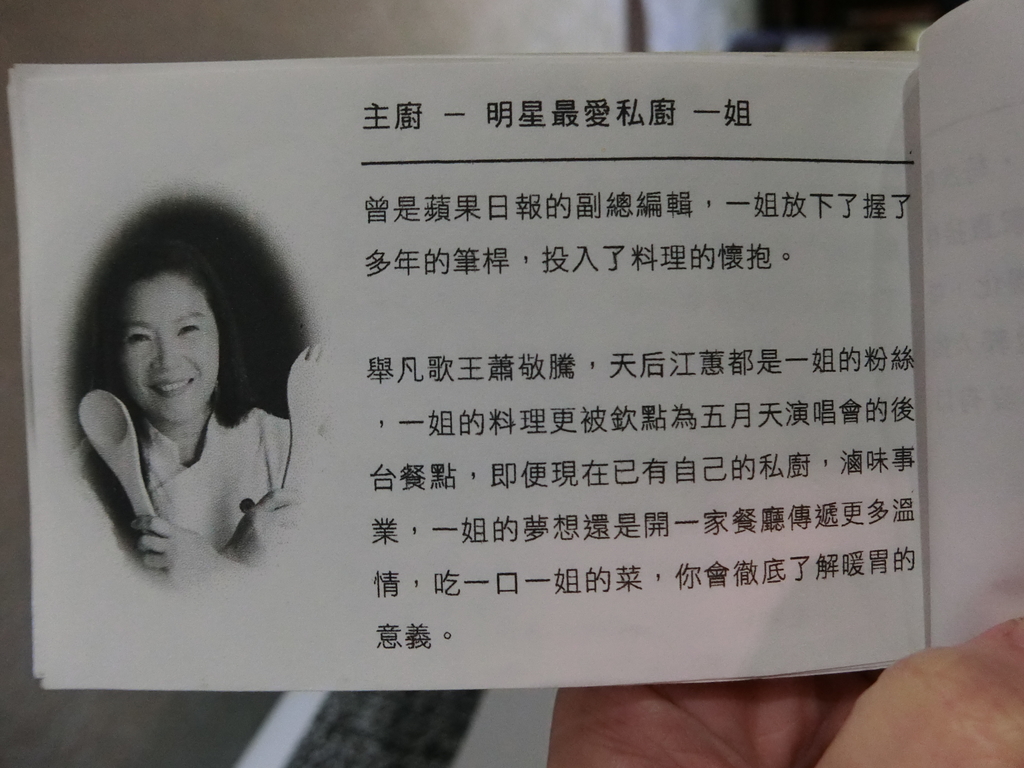 主廚 － 明星最愛私廚 一姐
曾是蘋果日報的副總編輯，一姐放下了握了
多年的筆桿，投入了料理的懷抱。
舉凡歌王蕭敬騰，天后江蕙都是一姐的粉絲
，一姐的料理更被欽點為五月天演唱會的後
台餐點，即便現在已有自己的私廚，滷味事
業，一姐的夢想還是開一家餐廳傳遞更多溫
情，吃一口一姐的菜，你會徹底了解暖胃的
意義。